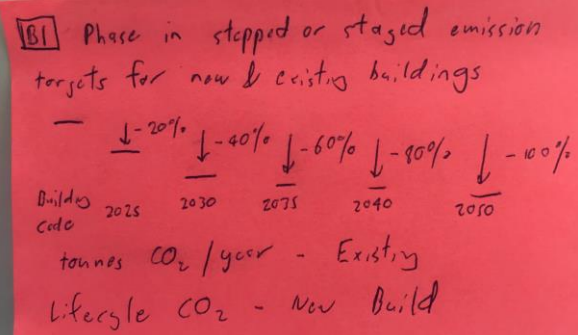 B1 Phase in stepped or staged emission
targets for new & existing buildings
-20% -40% -60% -80% -100%
Building code 2025 2030 2035 2040 2050
tonnes CO₂/year - Existing
Lifecyle CO₂ - New Build